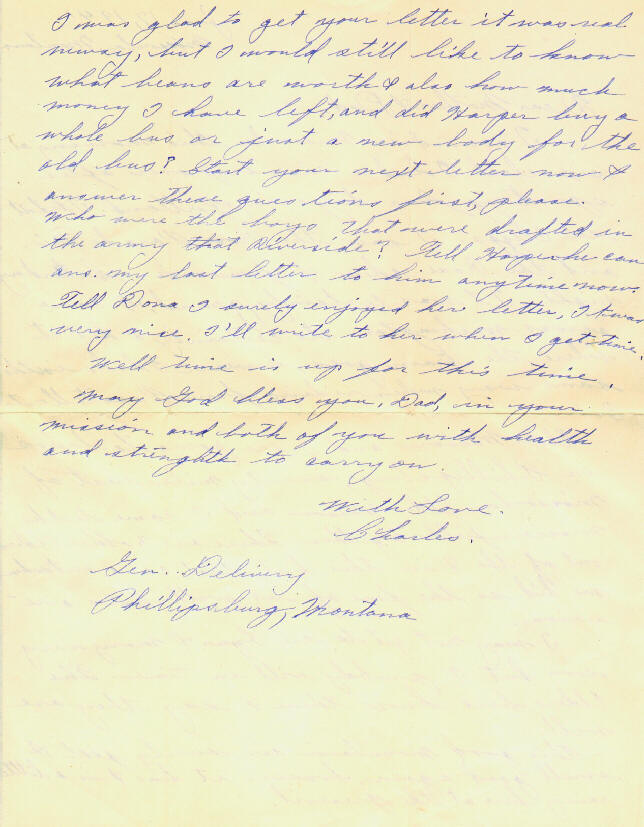 I was glad to get your letter it was real
newsy, but I would still like to know
what beans are worth & also how much
money I have left, and did Harper buy a
whole bus or just a new body for the
old bus? Start your next letter now &
answer these questions first, please.
Who were the boys that were drafted in
the army that Riverside? Tell Harper he can
ans. my last letter to him anytime now.
Tell Dona I surely enjoyed her letter, it was
very nice. I'll write to her when I get time.
Well time is up for this time.
May God bless you, Dad, in your
mission and both of you with health
and strenghth to carry on.
With Love.
Charles.
Gen. Delivery
Phillipsburg, Montana